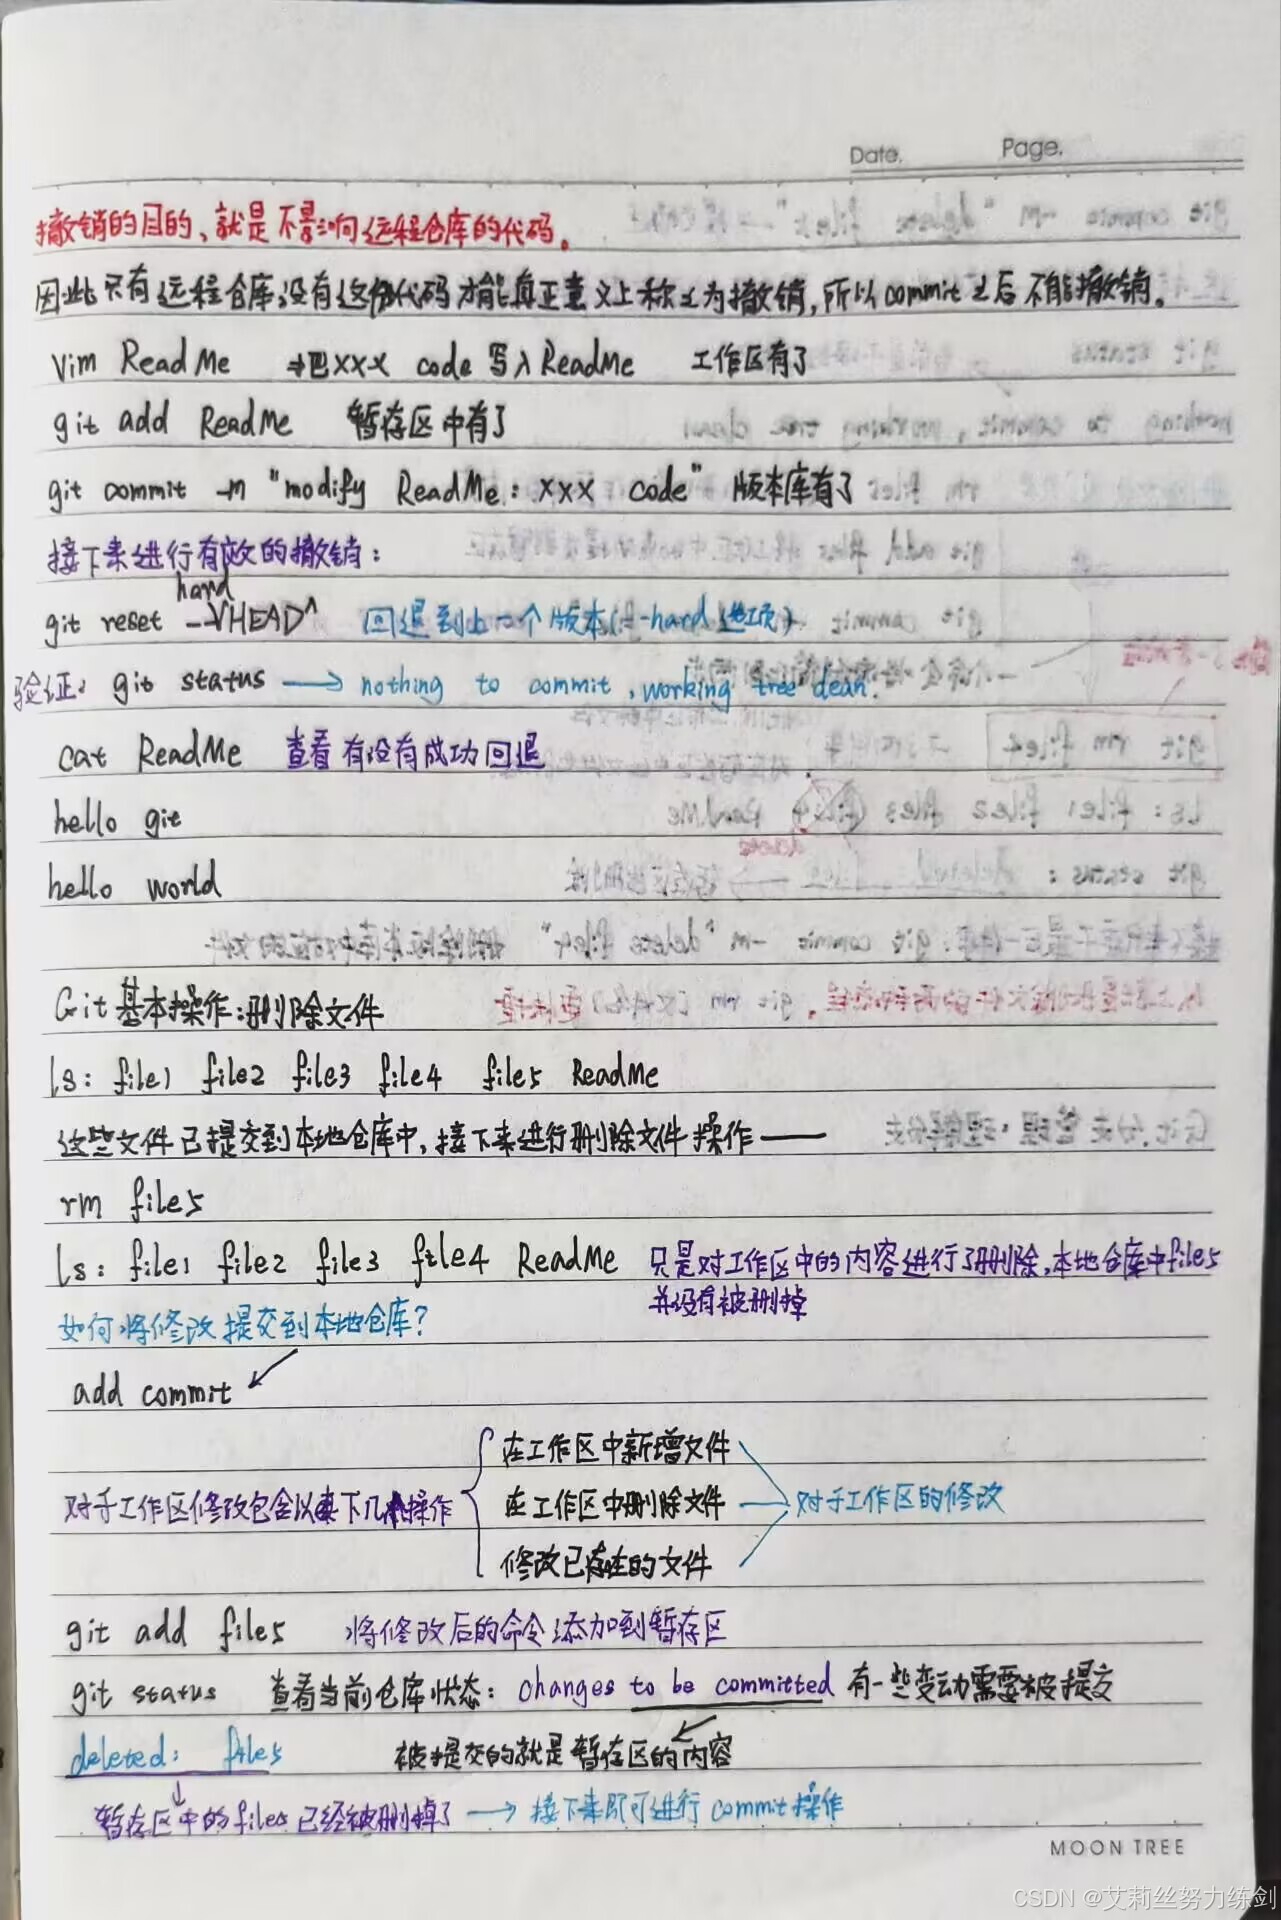 Date.
Page.
撤销的目的、就是不影响远程仓库的代码。
因此只有远程仓库没有这份代码才能真正意义上称之为撤销,所以commit之后不能撤销。
Vim ReadMe 把xxx code 写入ReadMe 工作区有了
git add ReadMe 暂存区中有了
git commit -m "modify ReadMe: xxx code" 版本库有了
接下来进行有效的撤销:
hard
git reset --√HEAD^ 回退到上一个版本(--hard选项)
验证: git status → nothing to commit, working tree clean.
cat ReadMe 查看有没有成功回退
hello git
hello world
Git基本操作:删除文件
ls: file1 file2 file3 file4 file5 ReadMe
这些文件已提交到本地仓库中,接下来进行删除文件操作——
rm file5
ls: file1 file2 file3 file4 ReadMe 只是对工作区中的内容进行了删除,本地仓库中file5
并没有被删掉
如何将修改提交到本地仓库?
add commit
在工作区中新增文件
对于工作区修改包含以下几个操作
在工作区中删除文件
对于工作区的修改
修改已存在的文件
git add file5 将修改后的命令添加到暂存区
git status 查看当前仓库状态: changes to be committed 有一些变动需要被提交
deleted: file5 被提交的就是暂存区的内容
暂存区中的file5已经被删掉了 → 接下来即可进行commit操作
MOON TREE
CSDN @艾莉丝努力练剑